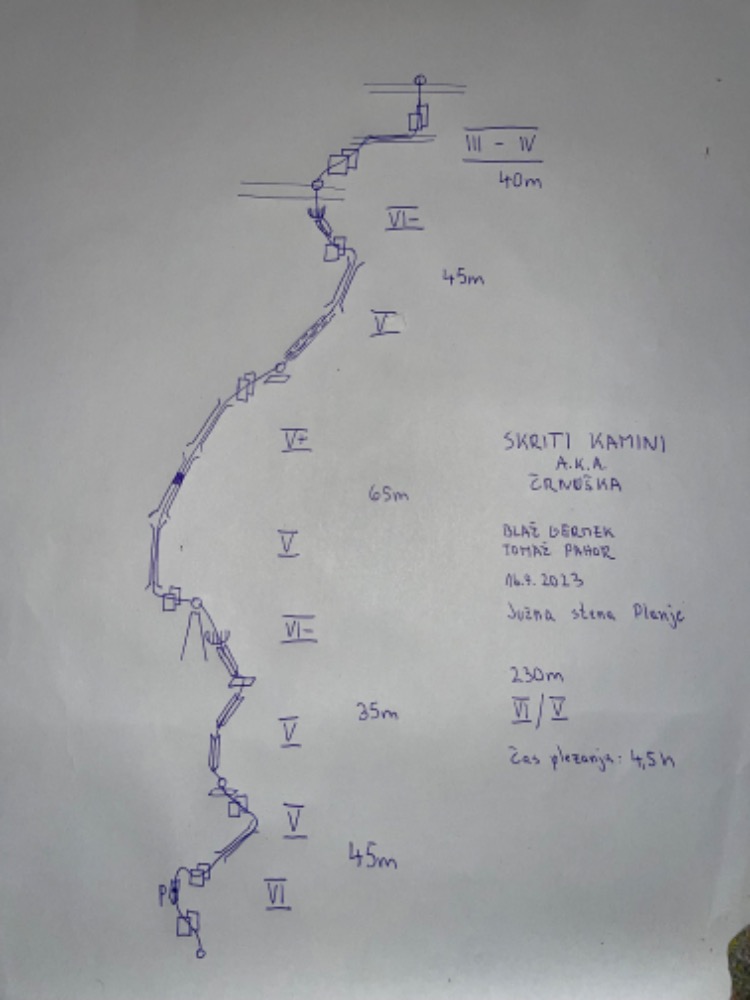 III - IV
40m
VI-
45m
V
V+
SKRITI KAMINI
A.K.A.
ČRNUŠKA
65m
V
BLAŽ
TOMAŽ PAHOR
16.9.2023
Južna stena Planje
VI-
230m
VI/V
35m
V
Čas plezanja: 4,5h
V
45m
P
VI